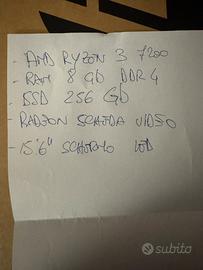 - AMD RYZEN 3 7200
- RAM 8 GB DDR4
- SSD 256 Gb
- RADEON SCHEDA VIDEO
- 15'6" SCHERMO LED
subito